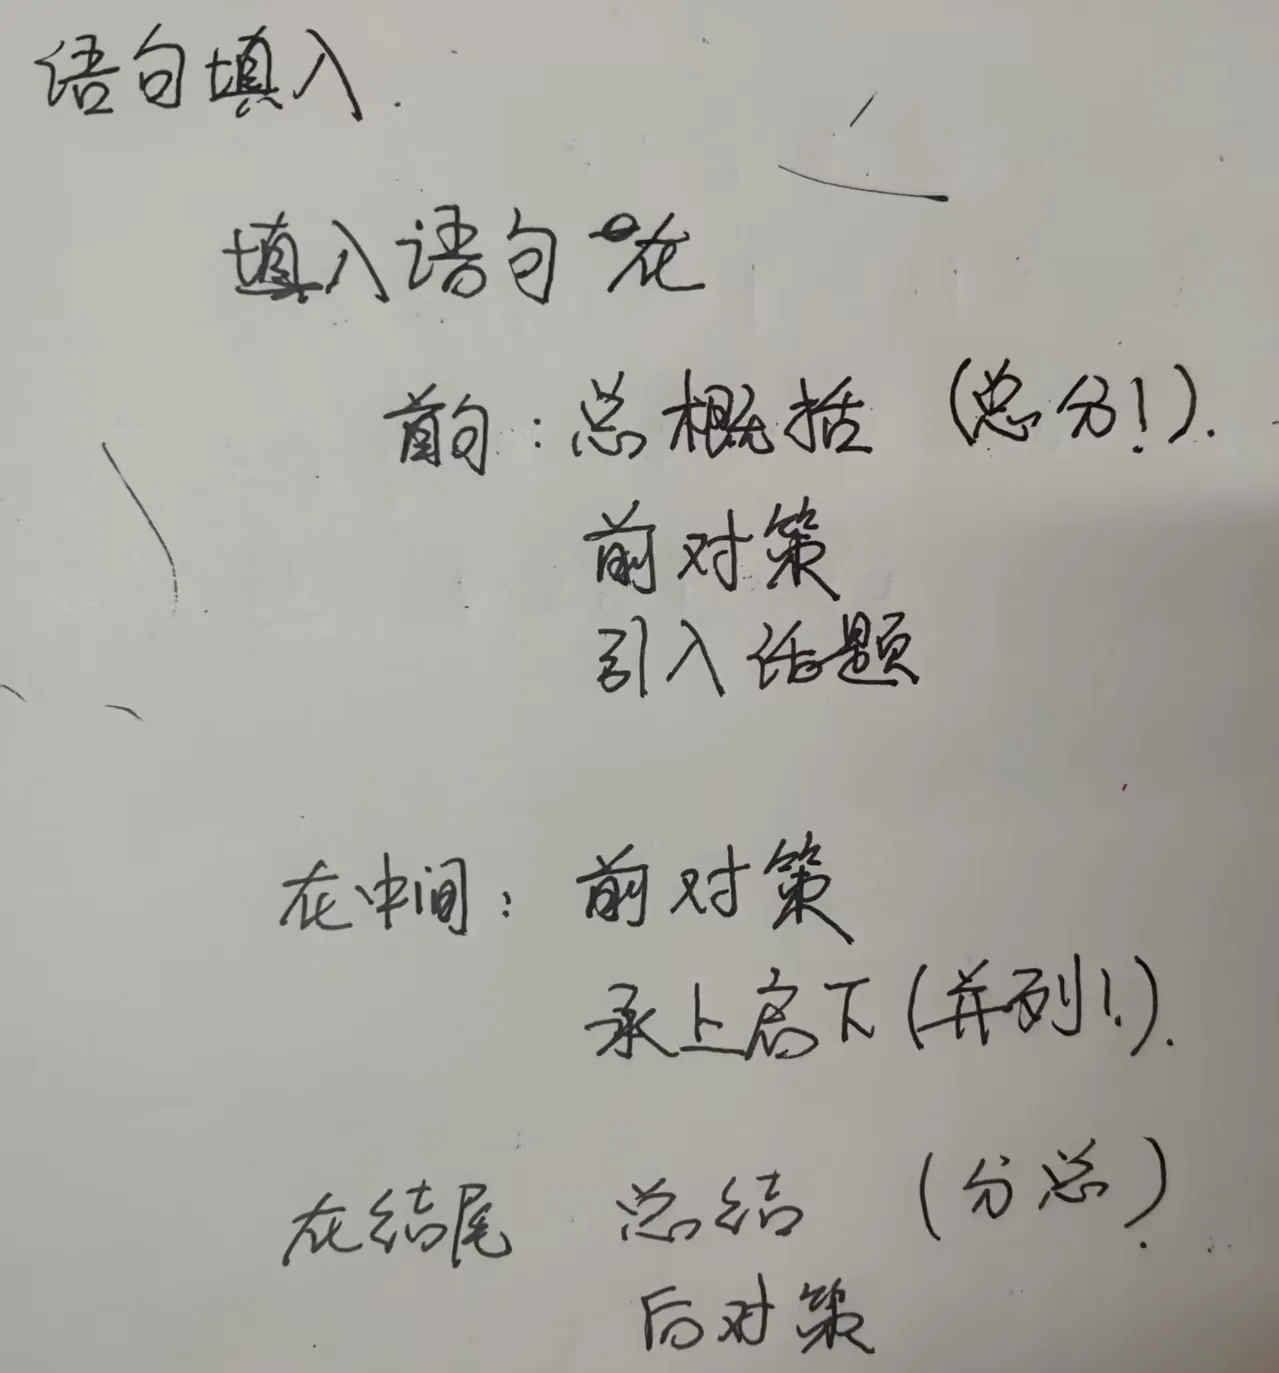 语句填入.
填入语句在
前句:总概括(总分!).
前对策
引入话题
在中间:前对策
承上启下(并列!).
在结尾 总结 (分总).
后对策